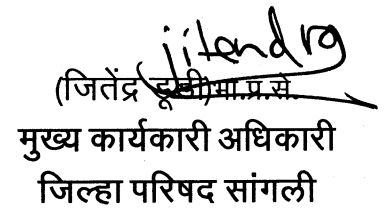 jitendra
(जितेंद्र डूडी)भा.प्र.से.
मुख्य कार्यकारी अधिकारी
जिल्हा परिषद सांगली